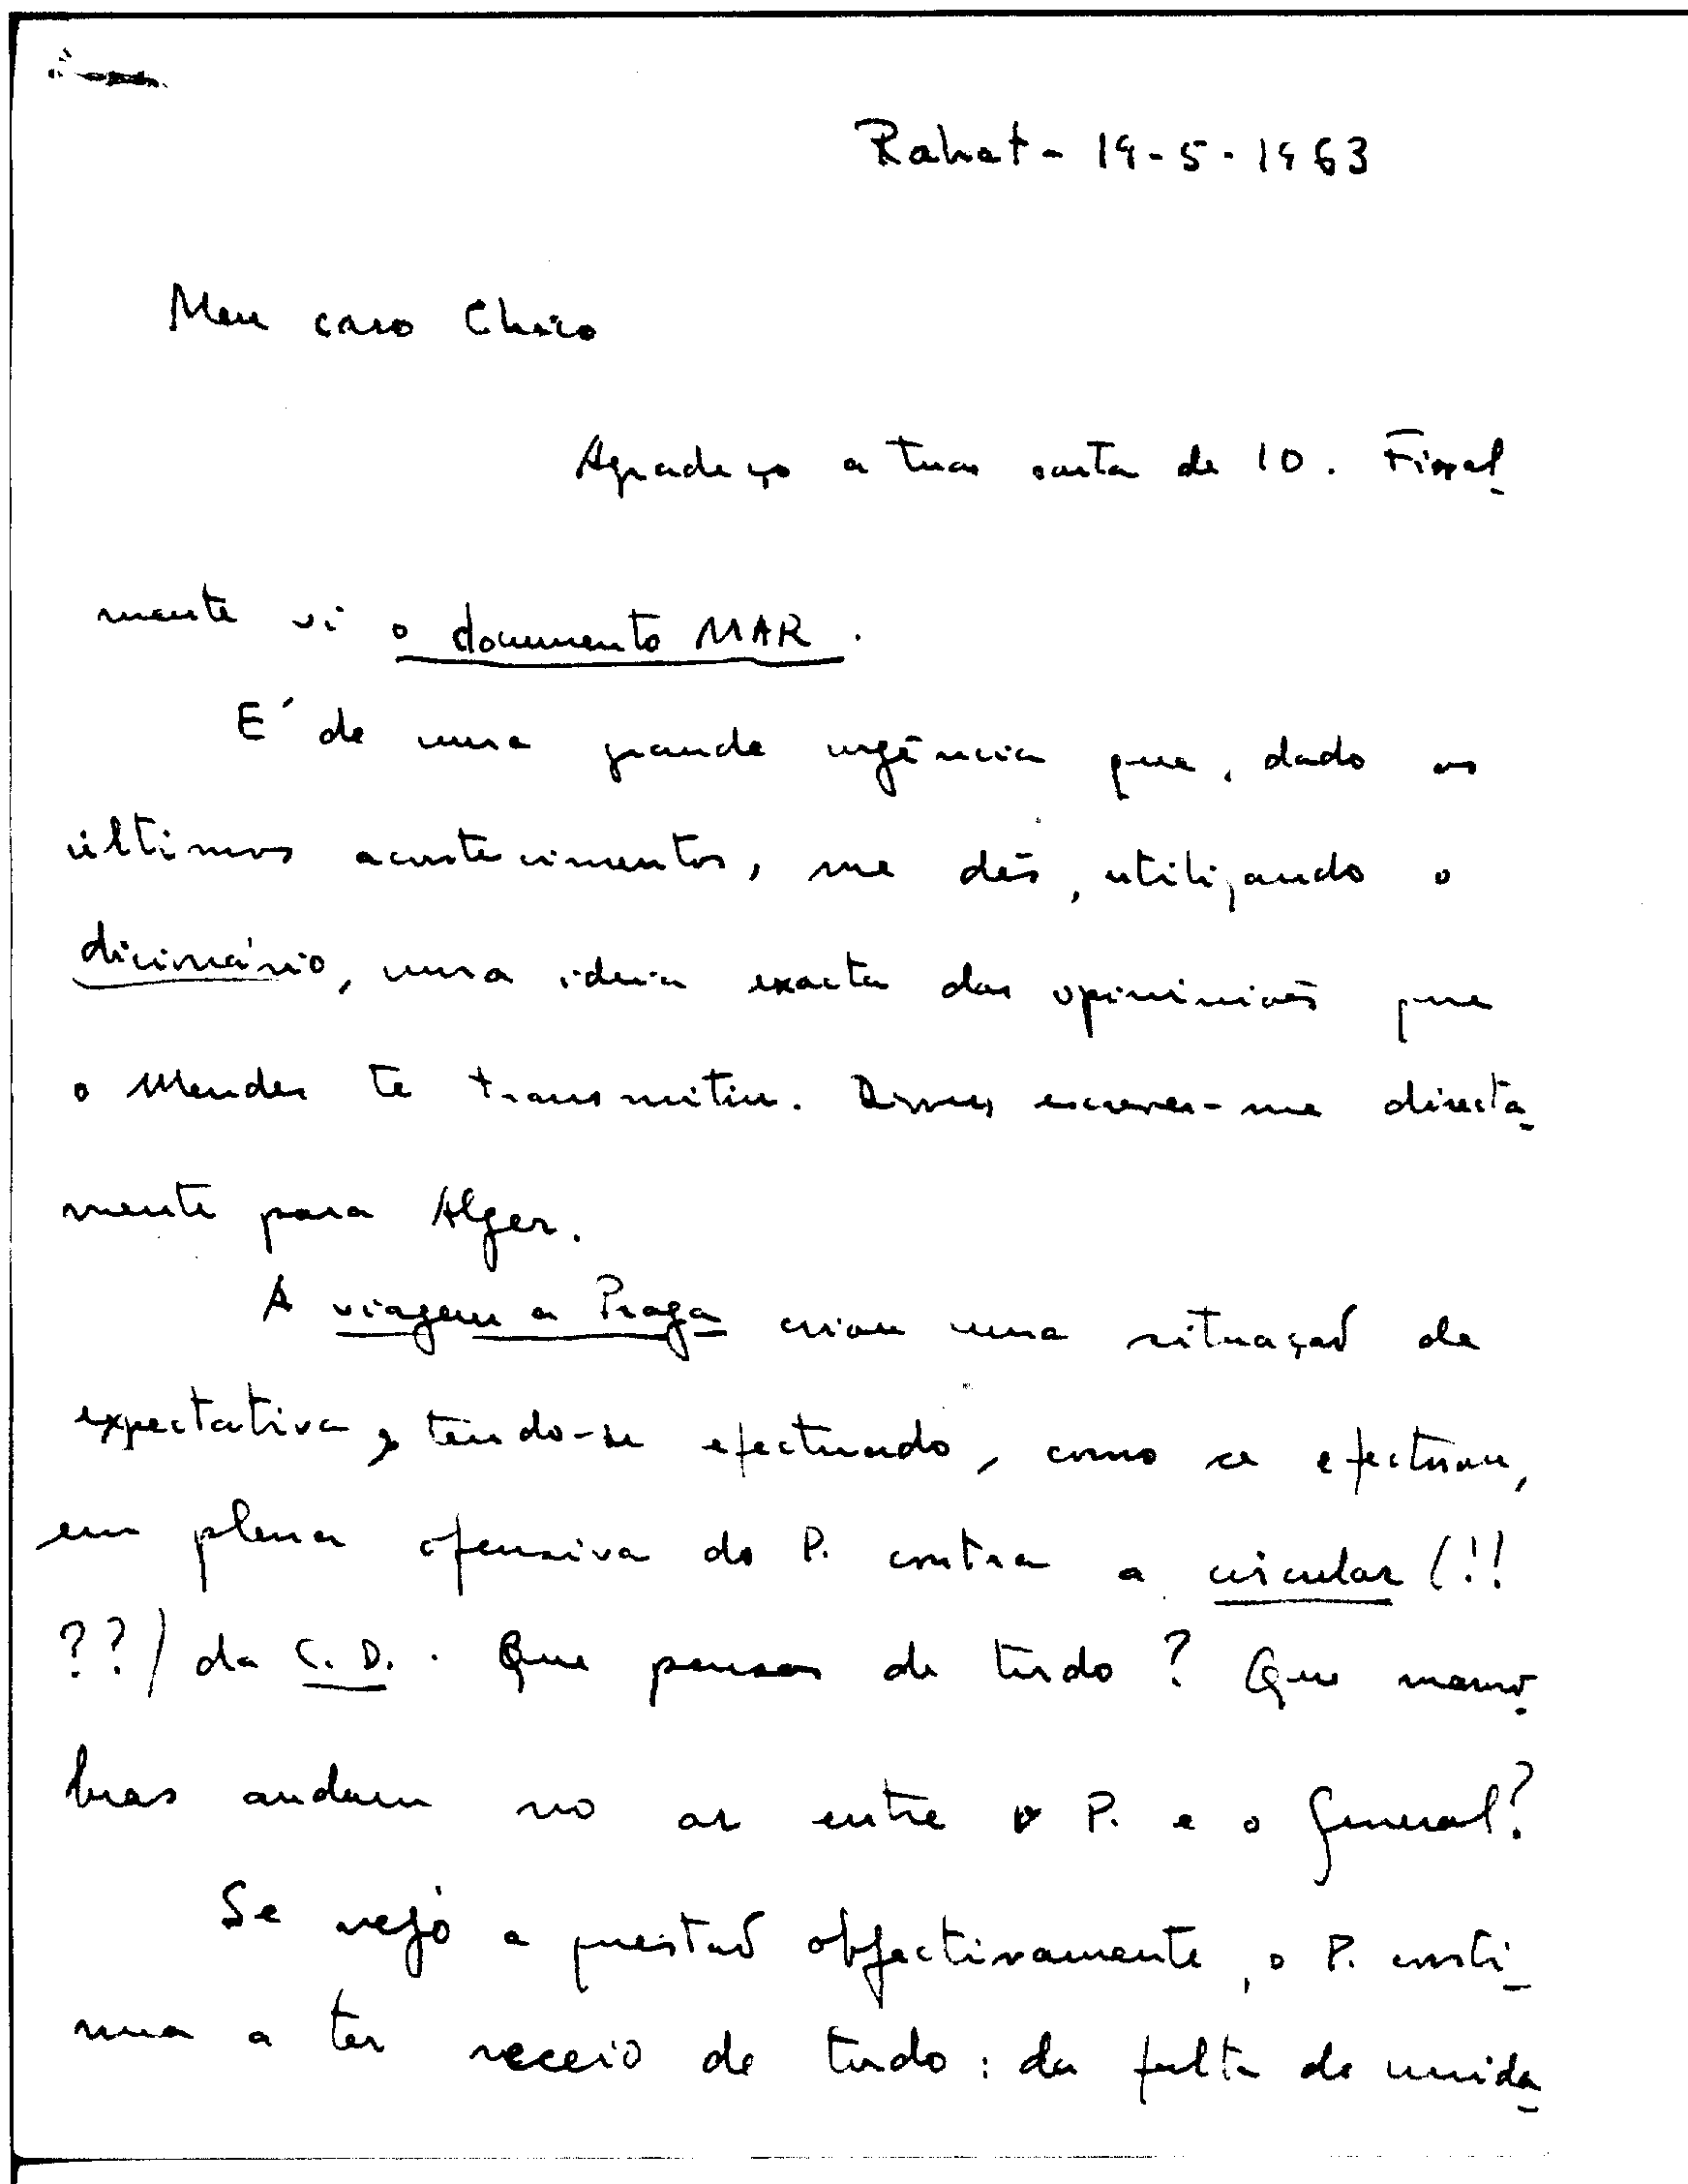 Rabat - 19-5-1963
Meu caro Chico
Agradeço a tua carta de 10. Final-
mente vi o documento MAR.
E´ de uma grande urgência que, dado os
últimos acontecimentos, me dês, utilizando o
dicionário, uma ideia exacta das opiniões que
o Mendes te transmitiu. Deves escrever-me directa-
mente para Alger.
A viagem a Praga criou uma situação de
expectativa, tendo-se efectuado, como se efectuou,
em plena ofensiva do P. contra a circular (!!
??) da C. D.. Que pensas de tudo? Que mano-
bras andam no ar entre o P. e o General?
Se vejo a questão objectivamente, o P. conti-
nua a ter receio de tudo: da falta de unida-